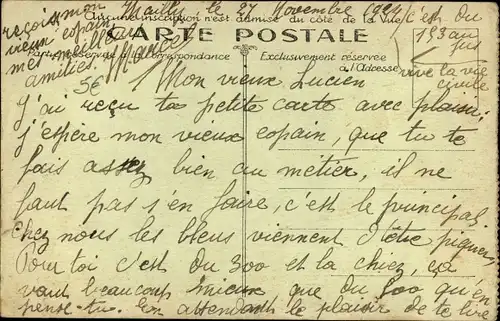 Mailly le 27 Novembre 1924
Aucune inscription n'est admise du côté de la Vue
CARTE POSTALE
Exclusivement réservée
à l'Adresse
c'est du
193 au
jus
vive la vie
civile
reçois mon
vieux copain
mes meilleures
amitiés. Marcel
5€
Mon vieux Lucien
J'ai reçu ta petite carte avec plaisir
j'espère mon vieux copain, que tu te
fais assez bien au métier, il ne
faut pas s'en faire, c'est le principal
chez nous les bleus viennent d'être piqués,
Pour toi c'est du 300 et la chiez, ça
vaut beaucoup mieux que du 500 qu'en
pense-tu. En attendant le plaisir de te lire